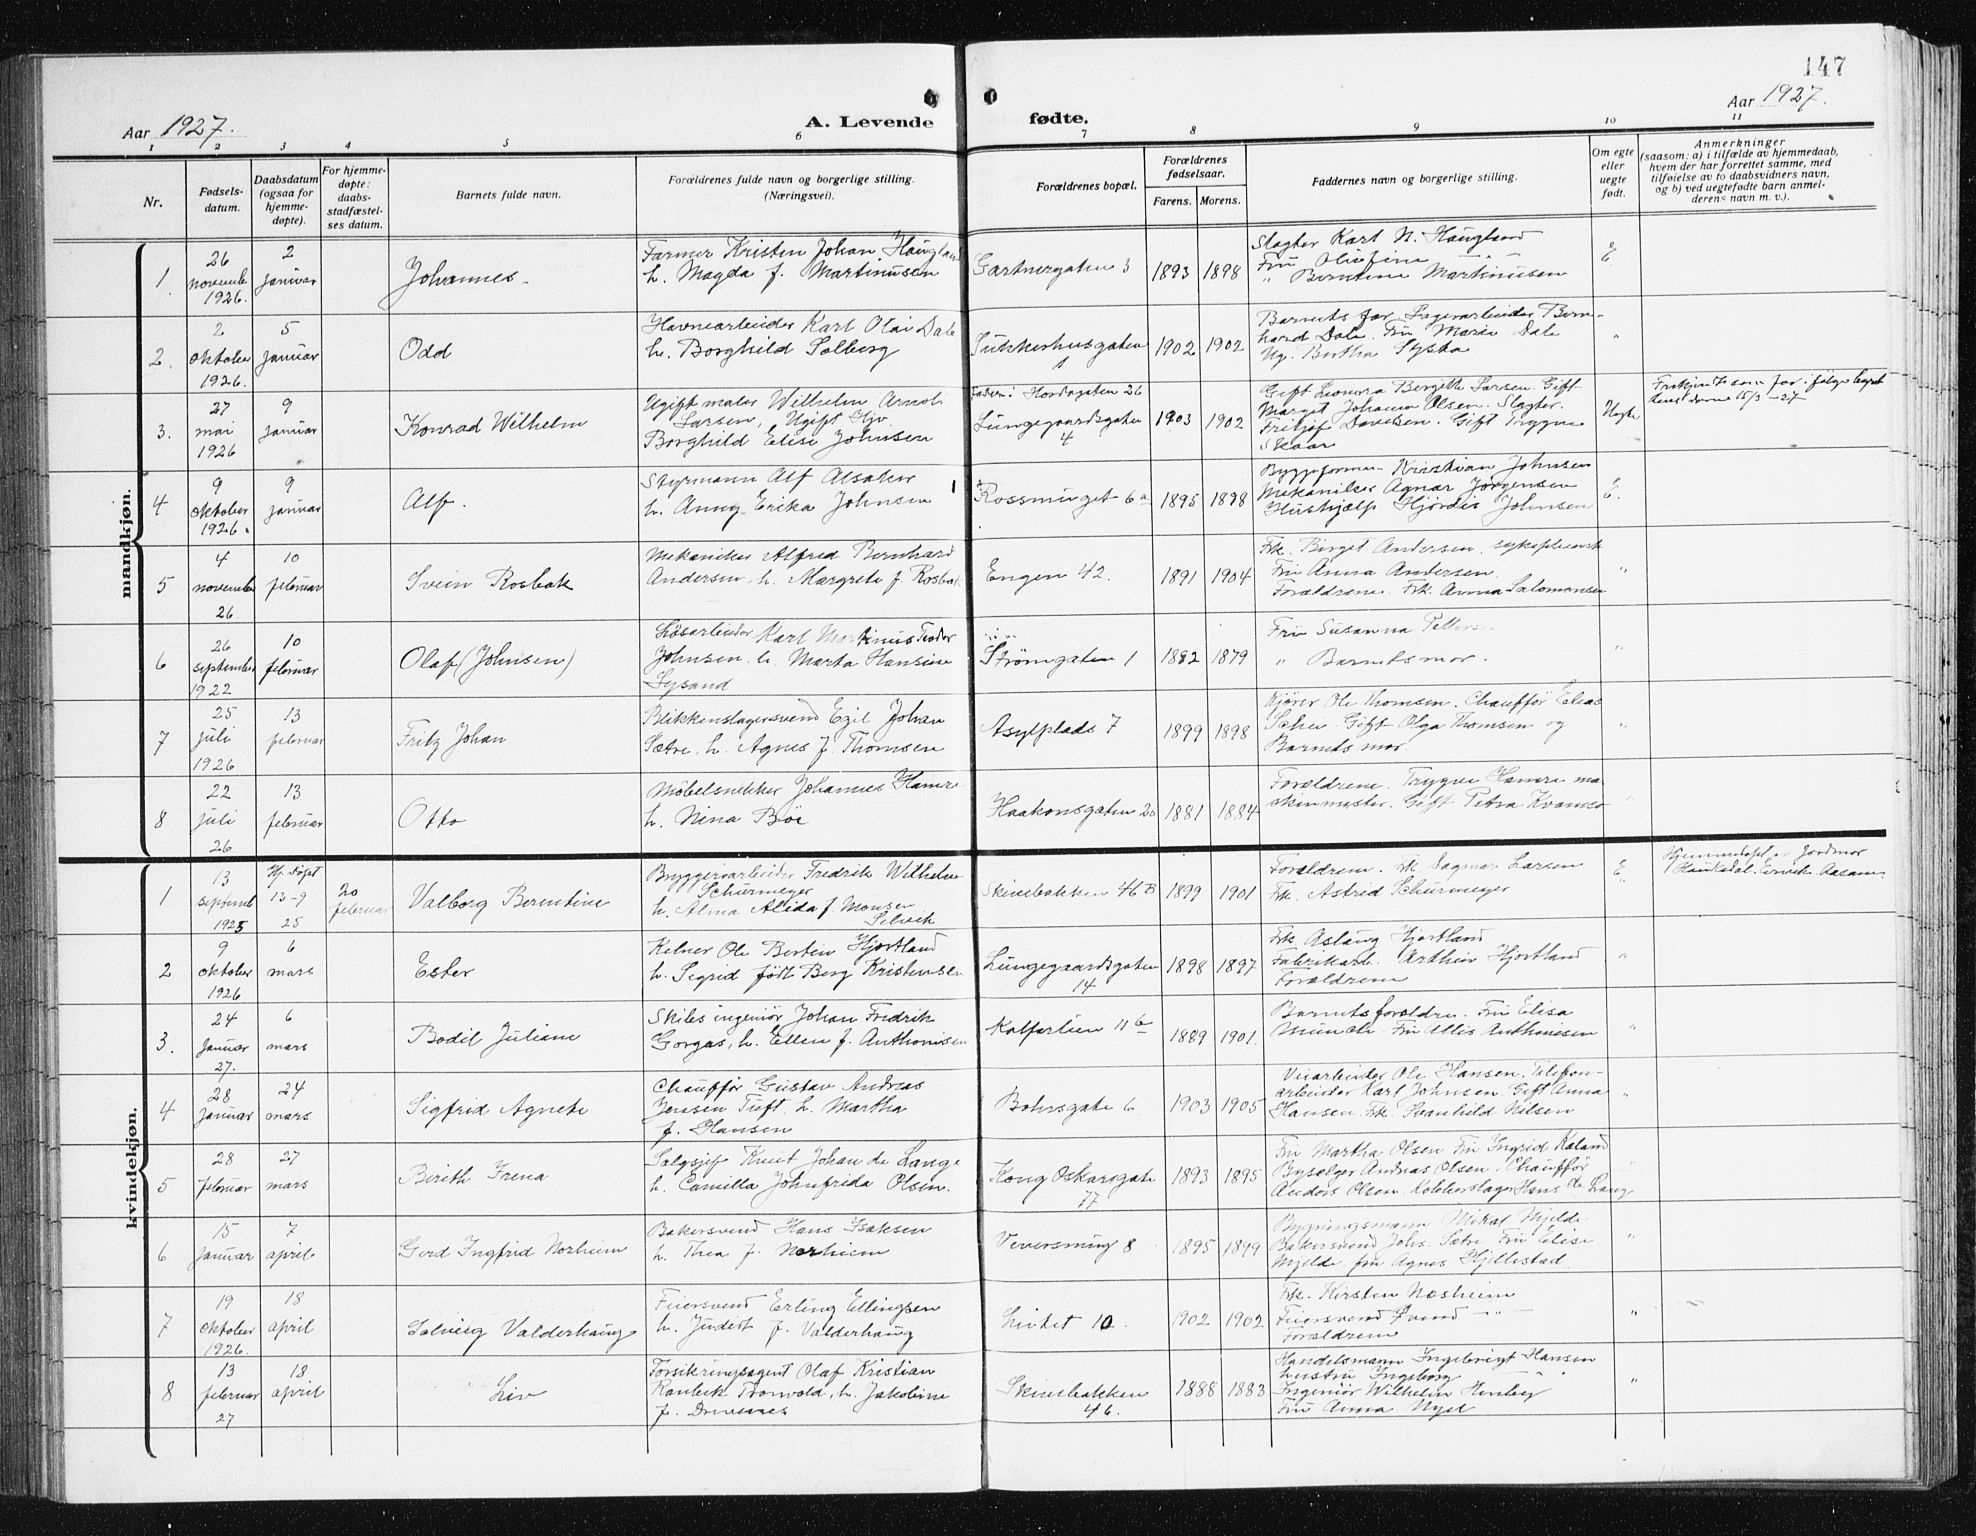 147
Aar 1927.
A. Levende
fødte.
Aar 1927.
1 2 3 4 5 6 7 8 9 10 11
Nr.
Fødsels-
datum.
Daabsdatum
(ogsaa for
hjemme-
døpte).
For hjemme-
døpte:
daabs-
stadfæstel-
ses datum.
Barnets fulde navn.
Forældrenes fulde navn og borgerlige stilling.
(Næringsvei).
Forældrenes bopæl.
Forældrenes
fødselsaar.
Farens. Morens.
Faddernes navn og borgerlige stilling.
Om egte
eller
uegte
født.
Anmerkninger
(saasom: a) i tilfælde av hjemmedaab,
hvem der har forrettet samme, med
tilføielse av to daabsvidners navn,
og b) ved uegtefødte barn anmel-
derens navn m. v.).
mandkjøn.
1.
26
novembe
1926.
2
januar
Johannes
Farmer Kristen Johan Haugland
h. Magda f. Martinusen
Gartnergaten 3
1893 1898
Slagter Karl N. Haugland
Fru Olufine " "
" Berntine Martinusen
E
2.
2
oktober
1926.
5
januar
Odd
Havnearbeider Karl Olai Dale
h. Borghild Solberg
Sukkerhusgaten
1
1902 1902
Barnets far, Lagerarbeider Bern-
hard Dale. Fru Maria Dale
Ug. Bertha Systa
"
3.
27
mai
1926
9
januar
Konrad Wilhelm
Ugift maler Wilhelm Arnol
Larsen, Ugift Hjv.
Borghild Elise Johnsen
Faderen: Hordagaten 26
Lungegaardsgaten
4
1903 1902
Gift Leonora Bergette Larsen. Gift
Margit Johanne Olsen. Slagter
Fritjof Davidsen. Gift Trygve
Skaar
Uegte
15/3 - 27
4
9
oktober
1926.
9
januar
Alf.
Styrmann Alf Alsaker
h. Anny Erika Johnsen
Rossmuget 6a
1895 1898
Byggeformann Kristian Johnsen
Mekaniker Agnar Jørgensen
Hushjælp Hjørdis Johnsen
E.
5
4
november
26
10
februar
Svein Rosbak
Mekaniker Alfred Bernhard
Andersen, h. Margrete f. Rosbak
Engen 42.
1891 1904
Frk. Birget Andersen, sykepleiersk
Fru Anna Andersen
Forældrene. Frk. Anna Salomonsen
"
6
26
september
1922
10
februar
Olaf (Johnsen)
Løsarbeider Karl Martinus Teodor
Johnsen. h. Marta Hansine
Lysand
Strømgaten 1
1882 1879
Fru Susanna Pettersen
" Barnets mor.
"
7
25
juli
1926
13
februar
Fritz Johan
Blikkenslagersvend Egil Johan
Sætre, h. Agnes f. Thomsen
Asylplads 7
1899 1898
Kjører Ole Thomsen. Chauffør Elias
Gift Olga Thomsen og
Barnets mor.
"
8
22
juli
26
13
februar
Otto
Møbelsnekker Johannes Hamre
h. Nina Bøe
Haakonsgaten 20
1881 1884
Forældrene. Trygve Hamre, ma-
skinmester. Gift Petra Kvamsø
"
kvindekjøn.
1
13
septemb
1925
Hj. døpt
13-9
25
20
februar
Valborg Berentine
Bryggeriarbeider Fredrik Wilhelm
Schürmeyer
h. Alma Alida f. Monsen
Selvik
Skivebakken 46B
1899 1901
Forældrene. Frk Dagmar Larsen
Frk. Astrid Schürmeyer
E
Hjemmedøpt av Jordmor
2
9
oktober
1926
6
mars
Ester
Kelner Ole Bertin Hjortland
h. Sigrid født Berg Kristensen
Lungegaardsgaten
14
1898 1897
Frk Aslaug Hjortland
Fabrikarb. Arthur Hjortland
Forældrene
"
3.
24
januar
27.
6
mars
Bodil Juliane
Skibsingeniør Johan Fredrik
Gorgas, h. Ellen f. Anthonisen
Kalfarlien 11b
1889 1901.
Barnets forældre. Fru Elisa
Munch. Fru Allis Anthonisen
"
4
28
januar
24
mars
Sigfrid Agnete
Chauffør Gustav Andreas
Jensen Tuft. h. Martha
f. Hansen
Bohrsgate 6
1903 1905
Veiarbeider Ole Hansen. Telefon-
arbeider Karl Johnsen. Gift Anna
Hansen. Frk. Svanhild Nilsen
"
5
28
februar
27
mars
Berith Irena
Salgsjef Knut Johan de Lange
h. Camilla Johnfrida Olsen.
Kong Oskarsgate
77
1893 1895
Fru Martha Olsen Fru Ingrid Kaland
Byselger Andreas Olsen. Chauffør
Anders Olsen. Kobberslager Hans de Lange
"
6
15
januar
7
april
Gerd Ingfrid Norheim
Bakersvend Hans Isaksen
h. Thea f. Norheim
Veversmug 8
1895 1899
Bygningsmann Mikal Mjelde
Bakersvend Johs. Sætre. Fru Elise
Mjelde. fru Agnes Hjellestad
"
7
19
oktober
1926.
18
april
Solveig Valderhaug
Feiersvend Erling Ellingsen
h. Judith f. Valderhaug
Kroket 10.
1902 1902
Frk. Kirsten Næsheim
Feiersvend Øvend — " —
Forældrene
"
8
13
februar
27
18
april
Liv
Forsikringsagent Olaf Kristian
Ranbek Tronvold, h. Jakobine
f. Drivenes
Skivebakken
46.
1888 1883
Handelsmann Ingebrigt Hansen
hustru Ingeborg "
Ingeniør Wilhelm
Fru Anna Nyst
"